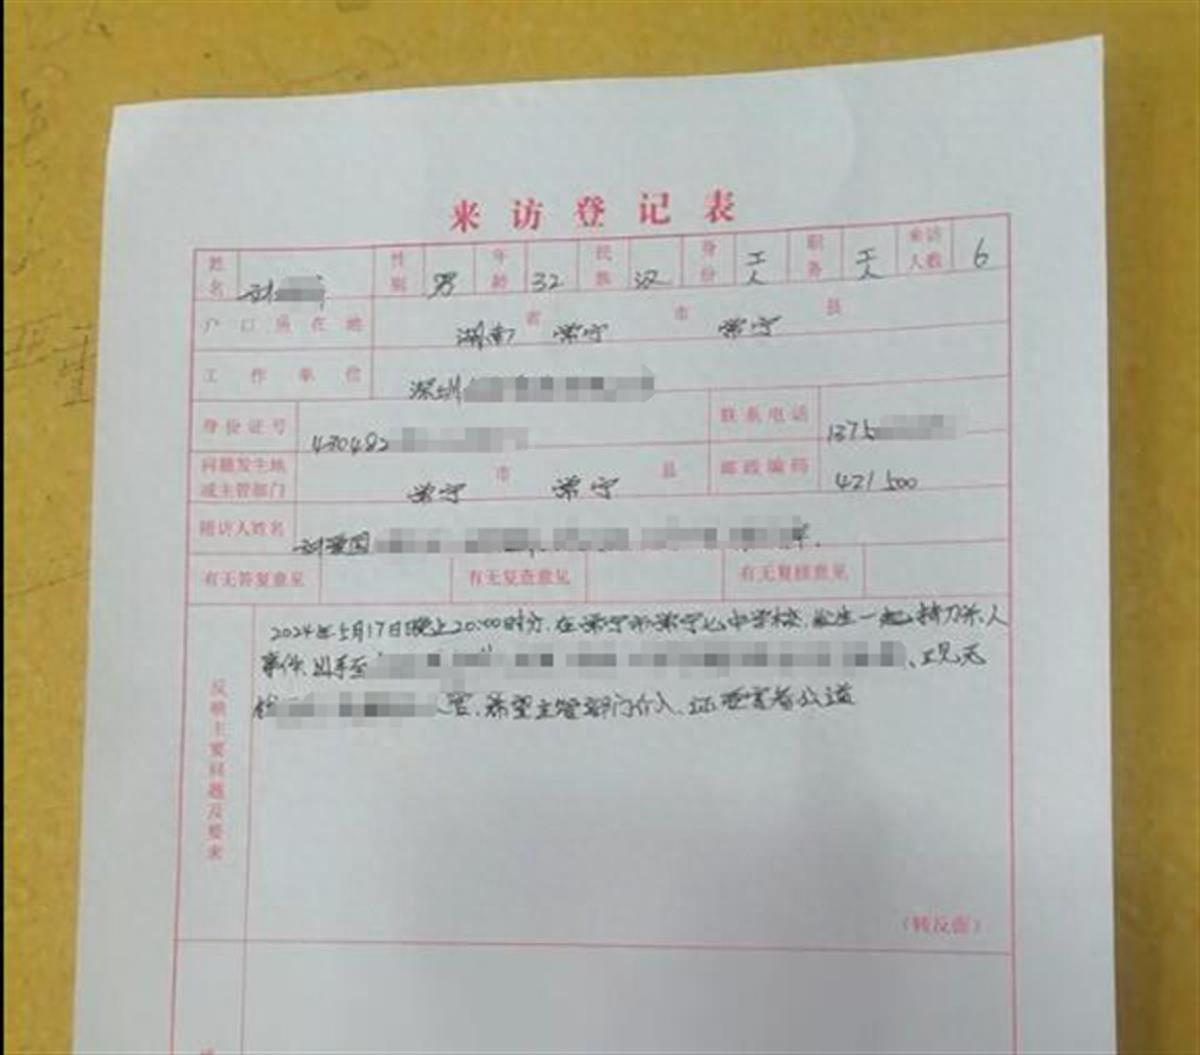 来访登记表
姓名 性别 男 年龄 32 民族 汉 身份 工人 职务 工人 来访人数 6
户口所在地 湖南 省 常宁 市 常宁 县
工作单位 深圳
身份证号 430482 联系电话 1375
问题发生地或主管部门 常宁 市 常宁 县 邮政编码 421500
随访人姓名
有无答复意见 有无复查意见 有无复核意见
反映主要问题及要求
2024年5月17日晚上20:00时分,在常宁市常宁七中学校,发生一起持刀杀人
事件,
,希望主管部门介入,还受害者公道
(转反面)